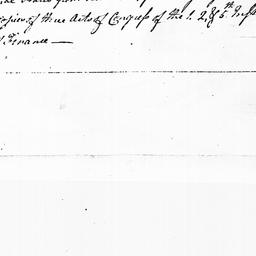 copies of three Acts of Congress of the 1. 2, & 5th Inst
Finance —